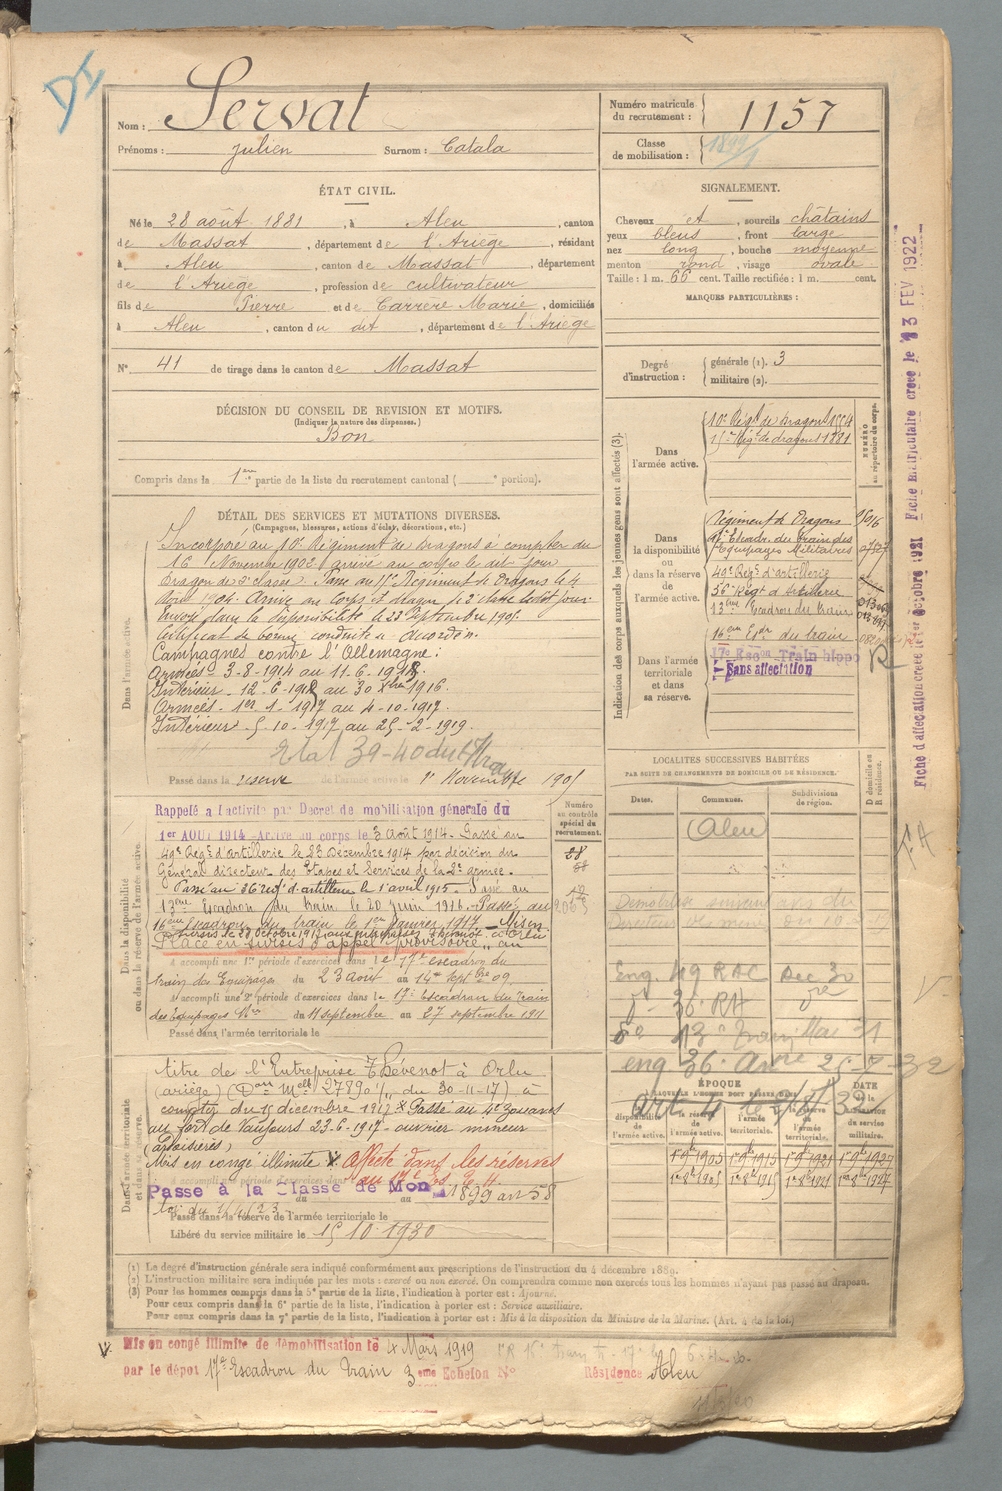 DI
Nom : Servat
Prénoms : Julien Surnom : Catala
Numéro matricule du recrutement : 1157
Classe de mobilisation : 1899
ÉTAT CIVIL.
Né le 28 août 1881, à Aleu, canton
de Massat, département de l'Ariège, résidant
à Aleu, canton de Massat, département
de l'Ariège, profession de cultivateur
fils de Pierre et de Carrère Marie, domiciliés
à Aleu, canton du dit, département de l'Ariège
N° 41 de tirage dans le canton de Massat
SIGNALEMENT.
Cheveux et, sourcils châtains
yeux bleus, front large
nez long, bouche moyenne
menton rond, visage ovale
Taille : 1 m. 66 cent. Taille rectifiée : 1 m. cent.
MARQUES PARTICULIÈRES :
Degré d'instruction : générale (1). 3
militaire (2).
DÉCISION DU CONSEIL DE REVISION ET MOTIFS.
(Indiquer la nature des dispenses.)
Bon
Compris dans la 1ère partie de la liste du recrutement cantonal ( portion).
DÉTAIL DES SERVICES ET MUTATIONS DIVERSES.
(Campagnes, blessures, actions d'éclat, décorations, etc.)
Dans l'armée active.
Incorporé au 10e Régiment de Dragons à compter du
16 Novembre 1902 arrivé au corps le dit jour
Dragon de 2e classe. Passé au Régiment de Dragons le 4
1904. Arrivé au corps et dragon de 2e classe le dit jour
Envoyé dans la disponibilité le 23 Septembre 1905
Certificat de bonne conduite accordé.
Campagnes contre l'Allemagne :
Armées 3-8-1914 au 11-6-
Intérieur 12-6- au 30 1916.
Armées 1er 1 1917 au 4-10-1917.
Intérieur 5-10-1917 au 25-2-1919.
Etat 39-40 du
Passé dans la réserve de l'armée active le 1er Novembre 1905
Indication des corps auxquels les jeunes gens sont affectés (3).
NUMÉRO au répertoire du corps.
Dans l'armée active.
10e Régt de Dragons 1554
Régt de dragons 1881
Dans la disponibilité ou dans la réserve de l'armée active.
Régiment de Dragons
17e Escadr. du train des
Equipages Militaires
49e Régt d'artillerie
36e Régt d'Artillerie
13ème Escadron du train
16ème Escdr du train
Dans l'armée territoriale et dans sa réserve.
17e Escon Train hippo
Sans affectation
Fiche d'affectation créée le 1er octobre 1921 Fiche matriculaire créée le 13 FEV 1922
Dans la disponibilité ou dans la réserve de l'armée active.
Numéro au contrôle spécial du recrutement.
Rappelé à l'activité par Décret de mobilisation générale du
1er AOUT 1914 - Arrivé au corps le 3 Août 1914. Passé au
49e Régt d'artillerie le 23 Décembre 1914 par décision du
Général directeur des Etapes et Services de la 2e armée.
Passé au 36e régt d'artillerie le 1er avril 1915. Passé au
13ème Escadron du train le 20 juin 1916. Passé au
16ème Escadron du train le 1er Janvier 1917. Mis en
Placé en sursis d'appel "provisoire" au
A accompli une 1re période d'exercices dans le 17e escadron du
train des Equipages du 23 août au 14 Septbre 09.
A accompli une 2e période d'exercices dans le 17e Escadron du Train
des Equipages Mres du 11 septembre au 27 septembre 1911
Passé dans l'armée territoriale le
LOCALITÉS SUCCESSIVES HABITÉES
PAR SUITE DE CHANGEMENTS DE DOMICILE OU DE RÉSIDENCE.
Dates. Communes. Subdivisions de région. D domicile ou R résidence.
Aleu
Eng. 49 RAC Dec 30
36. RA
13e train Mai 31
eng 36. Arre 25-7-32
Dans l'armée territoriale et dans sa réserve.
titre de l'Entreprise Thévenot à Orlu
(ariège) (Don Melle 27890 1/11 du 30-11-17) à
compter du 15 décembre 1917 Passé au 4e zouaves
au fort de Vaujours 23-6-1917 - ouvrier mineur
(ardoisières)
Mis en congé illimité Affecté dans les réserves
Passé à la Classe de Mon 1899 art 58
loi du 1/4/23
Passé dans la réserve de l'armée territoriale le
Libéré du service militaire le 15 10 1930
ÉPOQUE
À LAQUELLE L'HOMME DOIT PASSER DANS
la disponibilité de l'armée active. la réserve de l'armée active. l'armée territoriale. la réserve de l'armée territoriale.
DATE de la LIBÉRATION du service militaire.
1er 9bre 1905 1er 9bre 1915 1er 9bre 1921 1er 9bre 1927
(1) Le degré d'instruction générale sera indiqué conformément aux prescriptions de l'instruction du 4 décembre 1889.
(2) L'instruction militaire sera indiquée par les mots : exercé ou non exercé. On comprendra comme non exercés tous les hommes n'ayant pas passé au drapeau.
(3) Pour les hommes compris dans la 5e partie de la liste, l'indication à porter est : Ajourné.
Pour ceux compris dans la 6e partie de la liste, l'indication à porter est : Service auxiliaire.
Pour ceux compris dans la 7e partie de la liste, l'indication à porter est : Mis à la disposition du Ministre de la Marine. (Art. 4 de la loi.)
Mis en congé illimité de démobilisation le 4 Mars 1919
par le dépôt 17e Escadron du Train 3eme Echelon N° Résidence Aleu